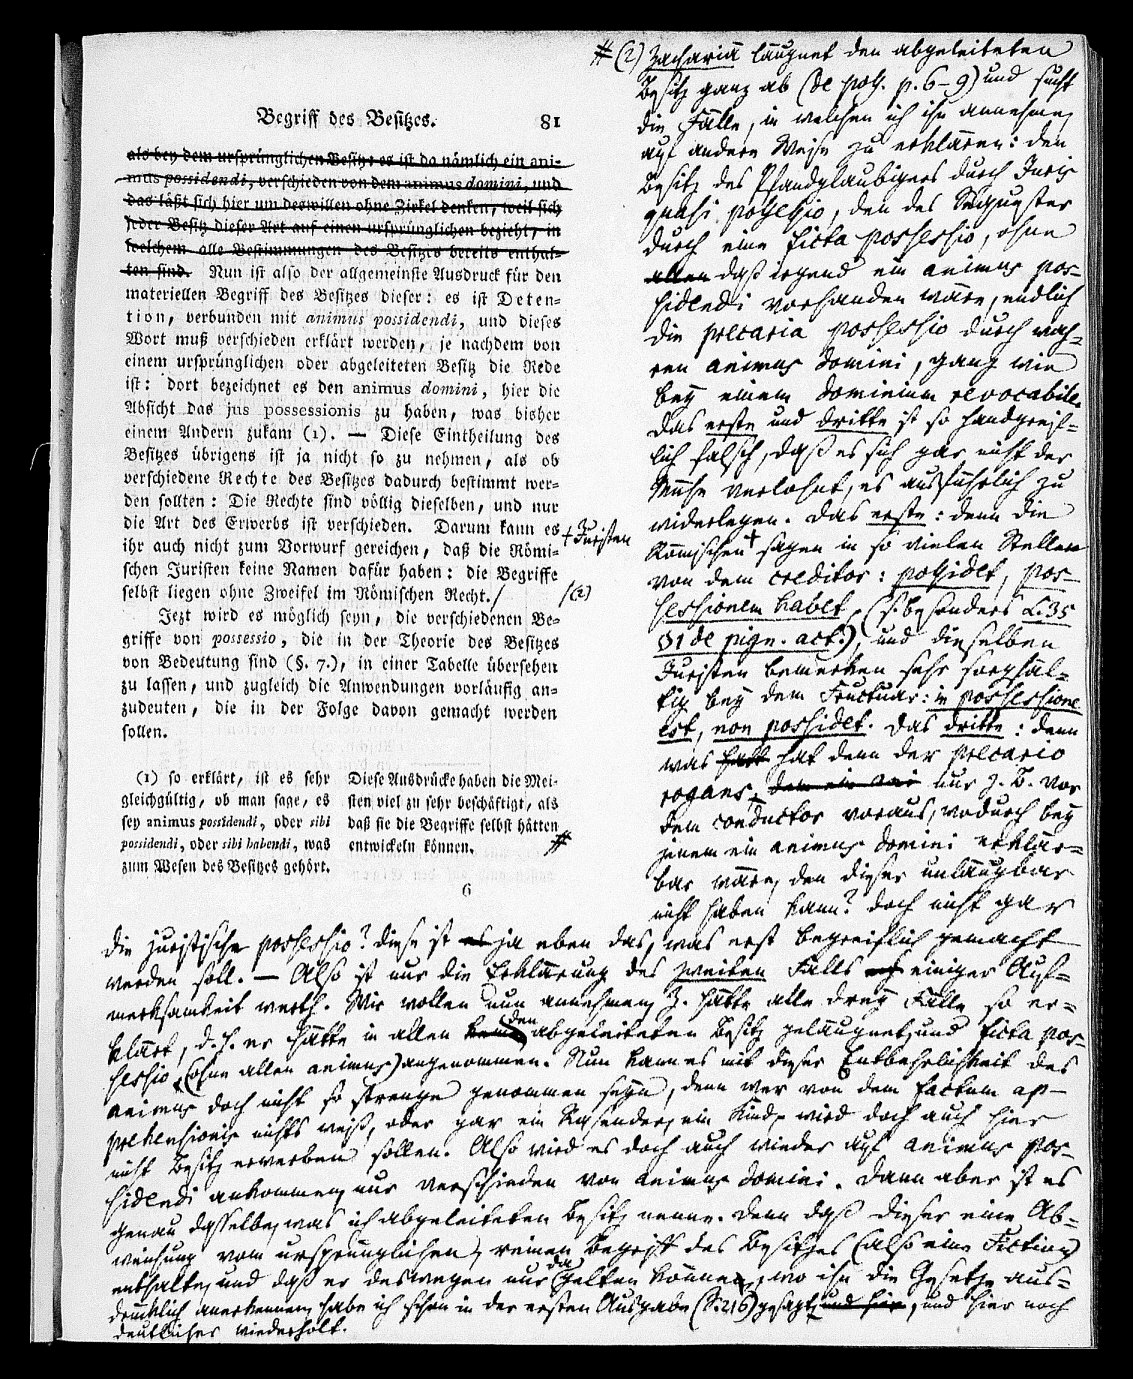 Begriff des Besitzes. 81
als bey dem ursprünglichen Besitz: es ist da nämlich ein ani-
mus possidendi, verschieden von dem animus domini, und
das läßt sich hier um deswillen ohne Zirkel denken, weil sich
jeder Besitz dieser Art auf einen ursprünglichen bezieht, in
welchem alle Bestimmungen des Besitzes bereits enthal-
ten sind. Nun ist also der allgemeinste Ausdruck für den
materiellen Begriff des Besitzes dieser: es ist Deten-
tion, verbunden mit animus possidendi, und dieses
Wort muß verschieden erklärt werden, je nachdem von
einem ursprünglichen oder abgeleiteten Besitz die Rede
ist: dort bezeichnet es den animus domini, hier die
Absicht das jus possessionis zu haben, was bisher
einem Andern zukam (1). — Diese Eintheilung des
Besitzes übrigens ist ja nicht so zu nehmen, als ob
verschiedene Rechte des Besitzes dadurch bestimmt wer-
den sollten: Die Rechte sind völlig dieselben, und nur
die Art des Erwerbs ist verschieden. Darum kann es
ihr auch nicht zum Vorwurf gereichen, daß die Römi-
schen Juristen keine Namen dafür haben: die Begriffe
selbst liegen ohne Zweifel im Römischen Recht. /
/(2)
Jezt wird es möglich seyn, die verschiedenen Be-
griffe von possessio, die in der Theorie des Besitzes
von Bedeutung sind (§. 7.), in einer Tabelle übersehen
zu lassen, und zugleich die Anwendungen vorläufig an-
zudeuten, die in der Folge davon gemacht werden
sollen.
(1) so erklärt, ist es sehr
gleichgültig, ob man sage, es
sey animus possidendi, oder sibi
possidendi, oder sibi habendi, was
zum Wesen des Besitzes gehört.
Diese Ausdrücke haben die Mei-
sten viel zu sehr beschäftigt, als
daß sie die Begriffe selbst hätten
entwickeln können. #
6
# (2) Zachariä läugnet den abgeleiteten
Besitz ganz ab (de poss. p. 6-9) und sucht
die Fälle, in welchen ich ihn annehme,
auf andere Weise zu erklären: den
Besitz des Pfandgläubigers durch Juris
quasi possessio, den des Sequester
durch eine ficta possessio, ohne
allen daß irgend ein animus pos-
sidendi vorhanden wäre, endlich
die precaria possessio durch wah-
ren animus domini, ganz wie
bey einem dominium revocabile.
Das erste und dritte ist so handgreif-
lich falsch, daß es sich gar nicht der
Mühe verlohnt, es ausführlich zu
widerlegen. Das erste: denn die
Römischen + sagen in so vielen Stellen
+ Juristen
von dem creditor: possidet, pos-
sessionem habet (s. besonders L. 35
§1 de pign. act.), und dieselben
Juristen bemerken sehr sorgfäl-
tig bey dem Fructuar: in possessione
est, non possidet. Das dritte: denn
was hatt hat denn der precario
rogans, nur z. B. vor
dem conductor voraus, wodurch bey
jenem ein animus domini erklär-
bar wäre, den dieser unläugbar
nicht haben kann? doch nicht gar
die juristische possessio? diese ist es ja eben das, was erst begreiflich gemacht
werden soll. — Also ist nur die Erklärung des zweiten Falls einiger Auf-
merksamkeit werth. Wir wollen nun annehmen, Z. hätte alle drey Fälle so er-
klärt, d. h. er hätte in allen den abgeleiteten Besitz geläugnet, und ficta pos-
sessio (ohne allen animus) angenommen. Nun kann es mit dieser Entbehrlichkeit des
animus doch nicht so strenge genommen seyn, denn wer von dem factum ap-
prehensionis nichts weiß, oder gar ein Rasender, ein Kind, wird doch auch hier
nicht Besitz erwerben sollen. Also wird es doch auch wieder auf animus pos-
sidendi ankommen, nur verschieden von animus domini. Dann aber ist es
genau dasselbe, was ich abgeleiteten Besitz nenne. Denn daß dieser eine Ab-
weichung vom ursprünglichen, reinen Begriff des Besitzes (also eine Fiction)
enthalte, und daß er deswegen nur da gelten könne, wo ihn die Gesetze aus-
drücklich anerkennen, habe ich schon in der ersten Ausgabe (S. 216) gesagt und hier, und hier noch
deutlicher wiederholt.